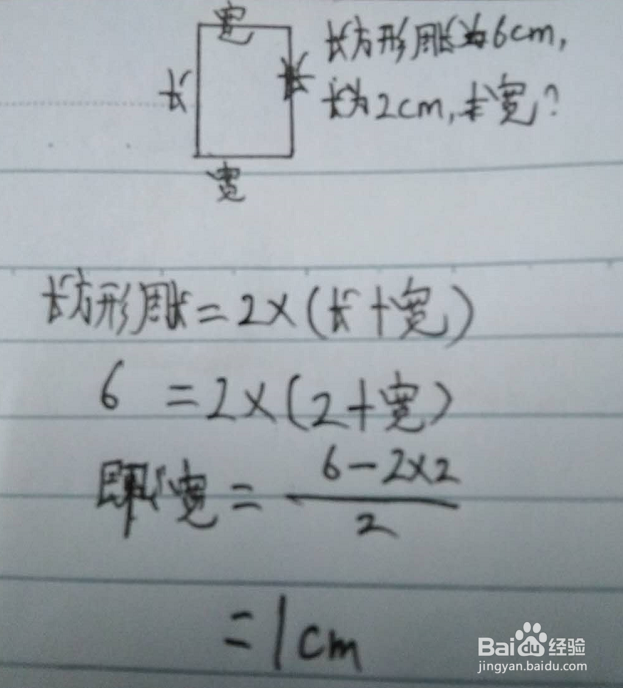 宽
长方形周长为6cm,
长 长
长为2cm,求宽?
宽
长方形周长=2×(长+宽)
6 =2×(2+宽)
即宽= 6-2×2
2
=1cm
Baidu经验
jingyan.baidu.com